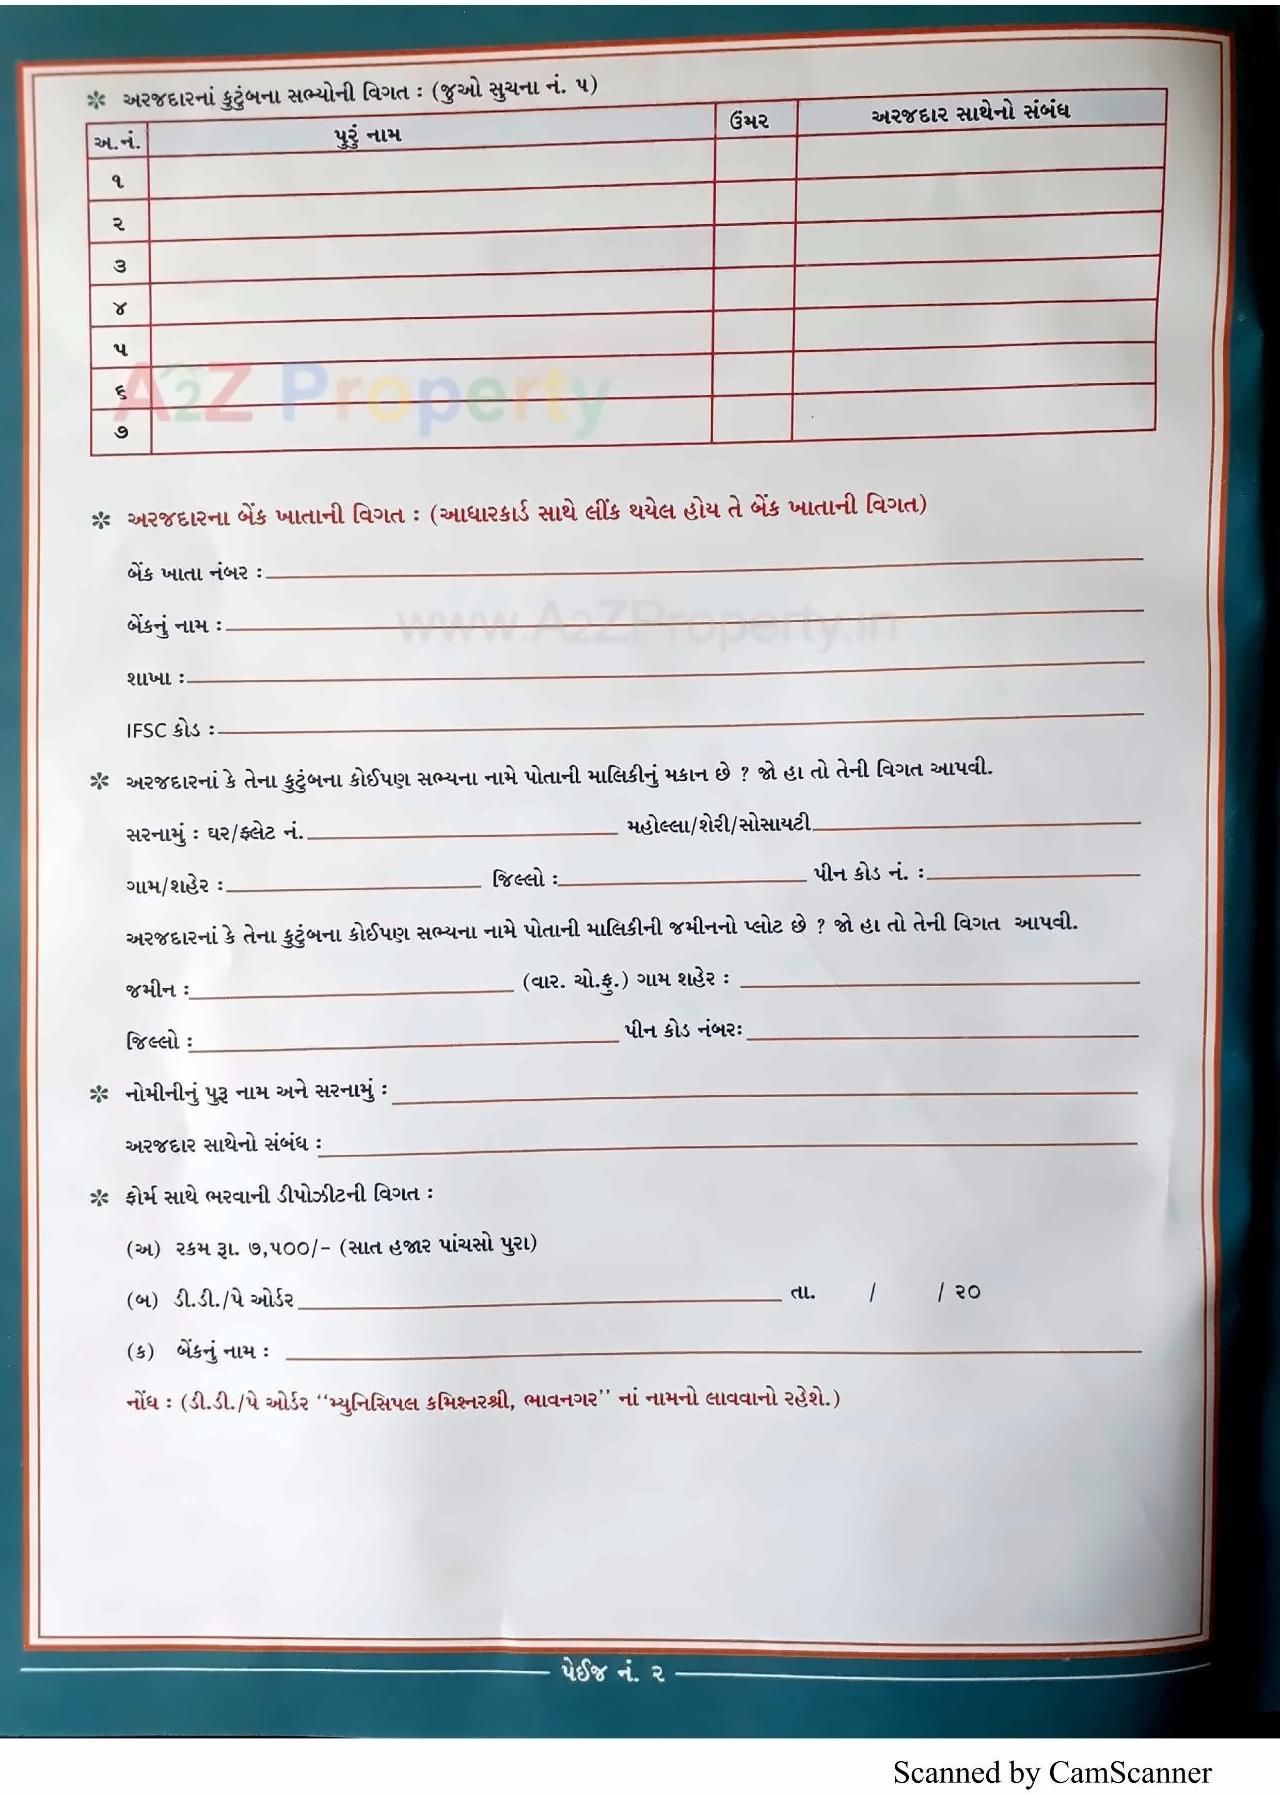 ✲ અરજદારનાં કુટુંબના સભ્યોની વિગત : (જુઓ સુચના નં. ૫)
અ.નં. પુરું નામ ઉંમર અરજદાર સાથેનો સંબંધ
૧
૨
૩
૪
૫
૬
૭
A2Z Property
✲ અરજદારના બેંક ખાતાની વિગત : (આધારકાર્ડ સાથે લીંક થયેલ હોય તે બેંક ખાતાની વિગત)
બેંક ખાતા નંબર :
બેંકનું નામ :
www.A2ZProperty.in
શાખા :
IFSC કોડ :
✲ અરજદારનાં કે તેના કુટુંબના કોઈપણ સભ્યના નામે પોતાની માલિકીનું મકાન છે ? જો હા તો તેની વિગત આપવી.
સરનામું : ઘર/ફ્લેટ નં. મહોલ્લા/શેરી/સોસાયટી
ગામ/શહેર : જિલ્લો : પીન કોડ નં. :
અરજદારનાં કે તેના કુટુંબના કોઈપણ સભ્યના નામે પોતાની માલિકીની જમીનનો પ્લોટ છે ? જો હા તો તેની વિગત આપવી.
જમીન : (વાર. ચો.ફુ.) ગામ શહેર :
જિલ્લો : પીન કોડ નંબર:
✲ નોમીનીનું પુરૂ નામ અને સરનામું :
અરજદાર સાથેનો સંબંધ :
✲ ફોર્મ સાથે ભરવાની ડીપોઝીટની વિગત :
(અ) રકમ રૂા. ૭,૫૦૦/- (સાત હજાર પાંચસો પુરા)
(બ) ડી.ડી./પે ઓર્ડર તા. / / ૨૦
(ક) બેંકનું નામ :
નોંધ : (ડી.ડી./પે ઓર્ડર “મ્યુનિસિપલ કમિશ્નરશ્રી, ભાવનગર” નાં નામનો લાવવાનો રહેશે.)
પેઈજ નં. ૨
Scanned by CamScanner